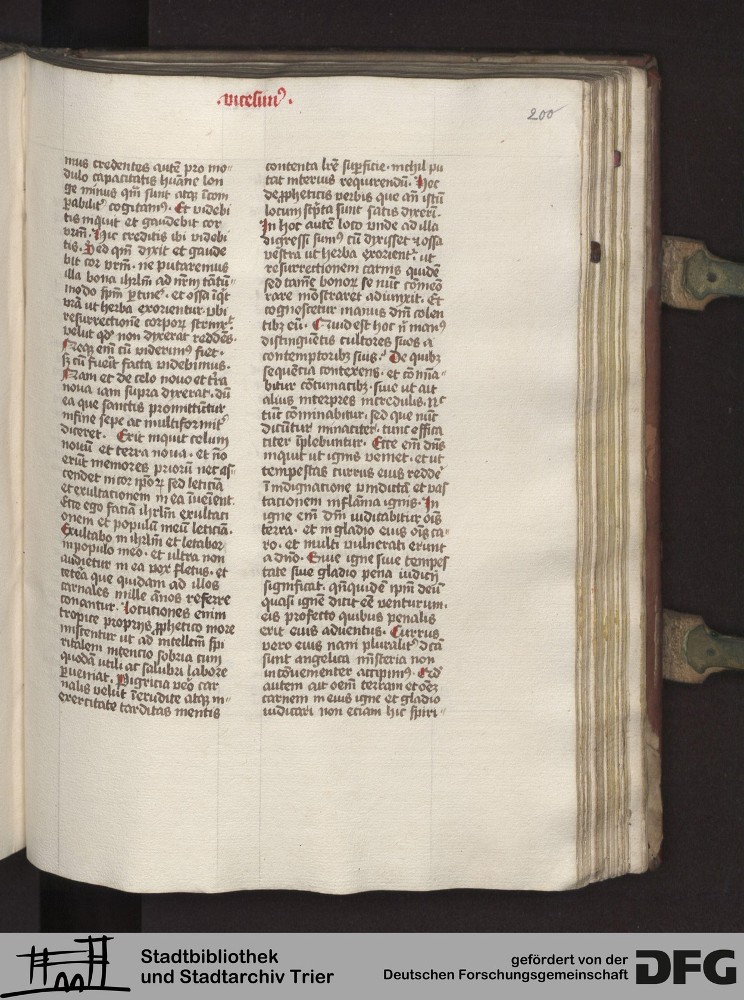 ·vicesimꝰ·
200
mus credentes autē pro mo-
dulo capacitatis huāne lon
ge minus qm̄ sunt atqꝫ īcom
ꝑabilit᷑ cogitamꝰ. Et videbi
tis inquit et gaudebit cor
vrm̄. Hic creditis ibi videbi
tis. Sed qm̄ dixit et gaude
bit cor vrm̄. ne putaremus
illa bona ihrlm̄ ad nrm̄ tātū-
modo spm̄ ꝑtine᷑. et ossa īqt
vrā ut herba exorientur. vbi
resurrectionē corpoꝝ strinx᷑.
velut qđ non dixerat reddēs.
Neqꝫ em̄ cū viderimꝰ fiet.
sꝫ cū fuerit facta videbimus.
Nam et de celo nouo et t̄ra
noua iam supra dixerat. dū
ea que sanctis promittūtur
in fine sepe ac multiformit᷑
diceret. Erit inquit celum
nouū et terra noua. et nō
erūt memores prioꝝ nec as
cendet in cor ipoꝝ sed leticiā
et exultationem in ea īueīent.
Ecce ego faciā ihrlm̄ exultati
onem et populū meū leticiā.
Exultabo in ihrlm̄ et letabor
in populo meo. et ultra non
audietur in ea vox fletus. et
cetēa que quidam ad illos
carnales mille ānos referre
conantur. Locutiones enim
tropice proprijs ꝓphetico more
miscentur ut ad intellcm̄ spi
ritalem intencio sobria cum
quodā utili ac salubri labore
ꝑueniat. Pigricia vero car
nalis velut īerudite atqꝫ in-
exercitate tarditas mentis
contenta lrē suꝑficie. nichil pu
tat interius requirendū. Hoc
de ꝓpheticis verbis que an̄ istū
locum sc̄pta sunt satis dixerī.
In hoc autē loco vnde ad illa
digressi sumꝰ cū dixisset et ossa
vestra ut herba exorient᷑. ut
resurrectionem carnis quidē
sed tamē bonoꝝ se nūc cōmeō
rare mōstraret adiunxit. Et
cognoscetur manus dnī colen
tibꝫ eū. Quid est hoc nꝭ manꝰ
distinguētis cultores suos a
contemptoribꝫ suis. De quibꝫ
sequētia contexens. et cōmīa-
bitur cōtumacibꝫ. siue ut ait
alius interpres incredulis. Nc̄
tūc cōminabitur. sed que nūc
dicūtur minaciter. tunc effica
citer īplebuntur. Ecce em̄ dn̄s
inquit ut ignis veniet. et ut
tempestas currus eius redde᷑
ī indignatione vindictā et vas
tacionem in flāma ignis. In
igne em̄ dnī iudicabitur oīs
terra. et in gladio eius oīs ca-
ro. et multi vulnerati erunt
a dnō. Siue igne siue tempes
tate siue gladio pena iudicij
significat. qn̄quidē ipm̄ deū
quasi ignē dicit eē venturum.
eis profecto quibus penalis
erit eius aduentus. Currus
vero eius nam pluralit᷑ dc̄ā
sunt angelica mīsteria non
inconuenienter accipimꝰ. Qđ
autem ait oem̄ terram et oēꝫ
carnem in eius igne et gladio
iudicari non eciam hic spiri-
Stadtbibliothek
und Stadtarchiv Trier
gefördert von der
Deutschen Forschungsgemeinschaft
DFG